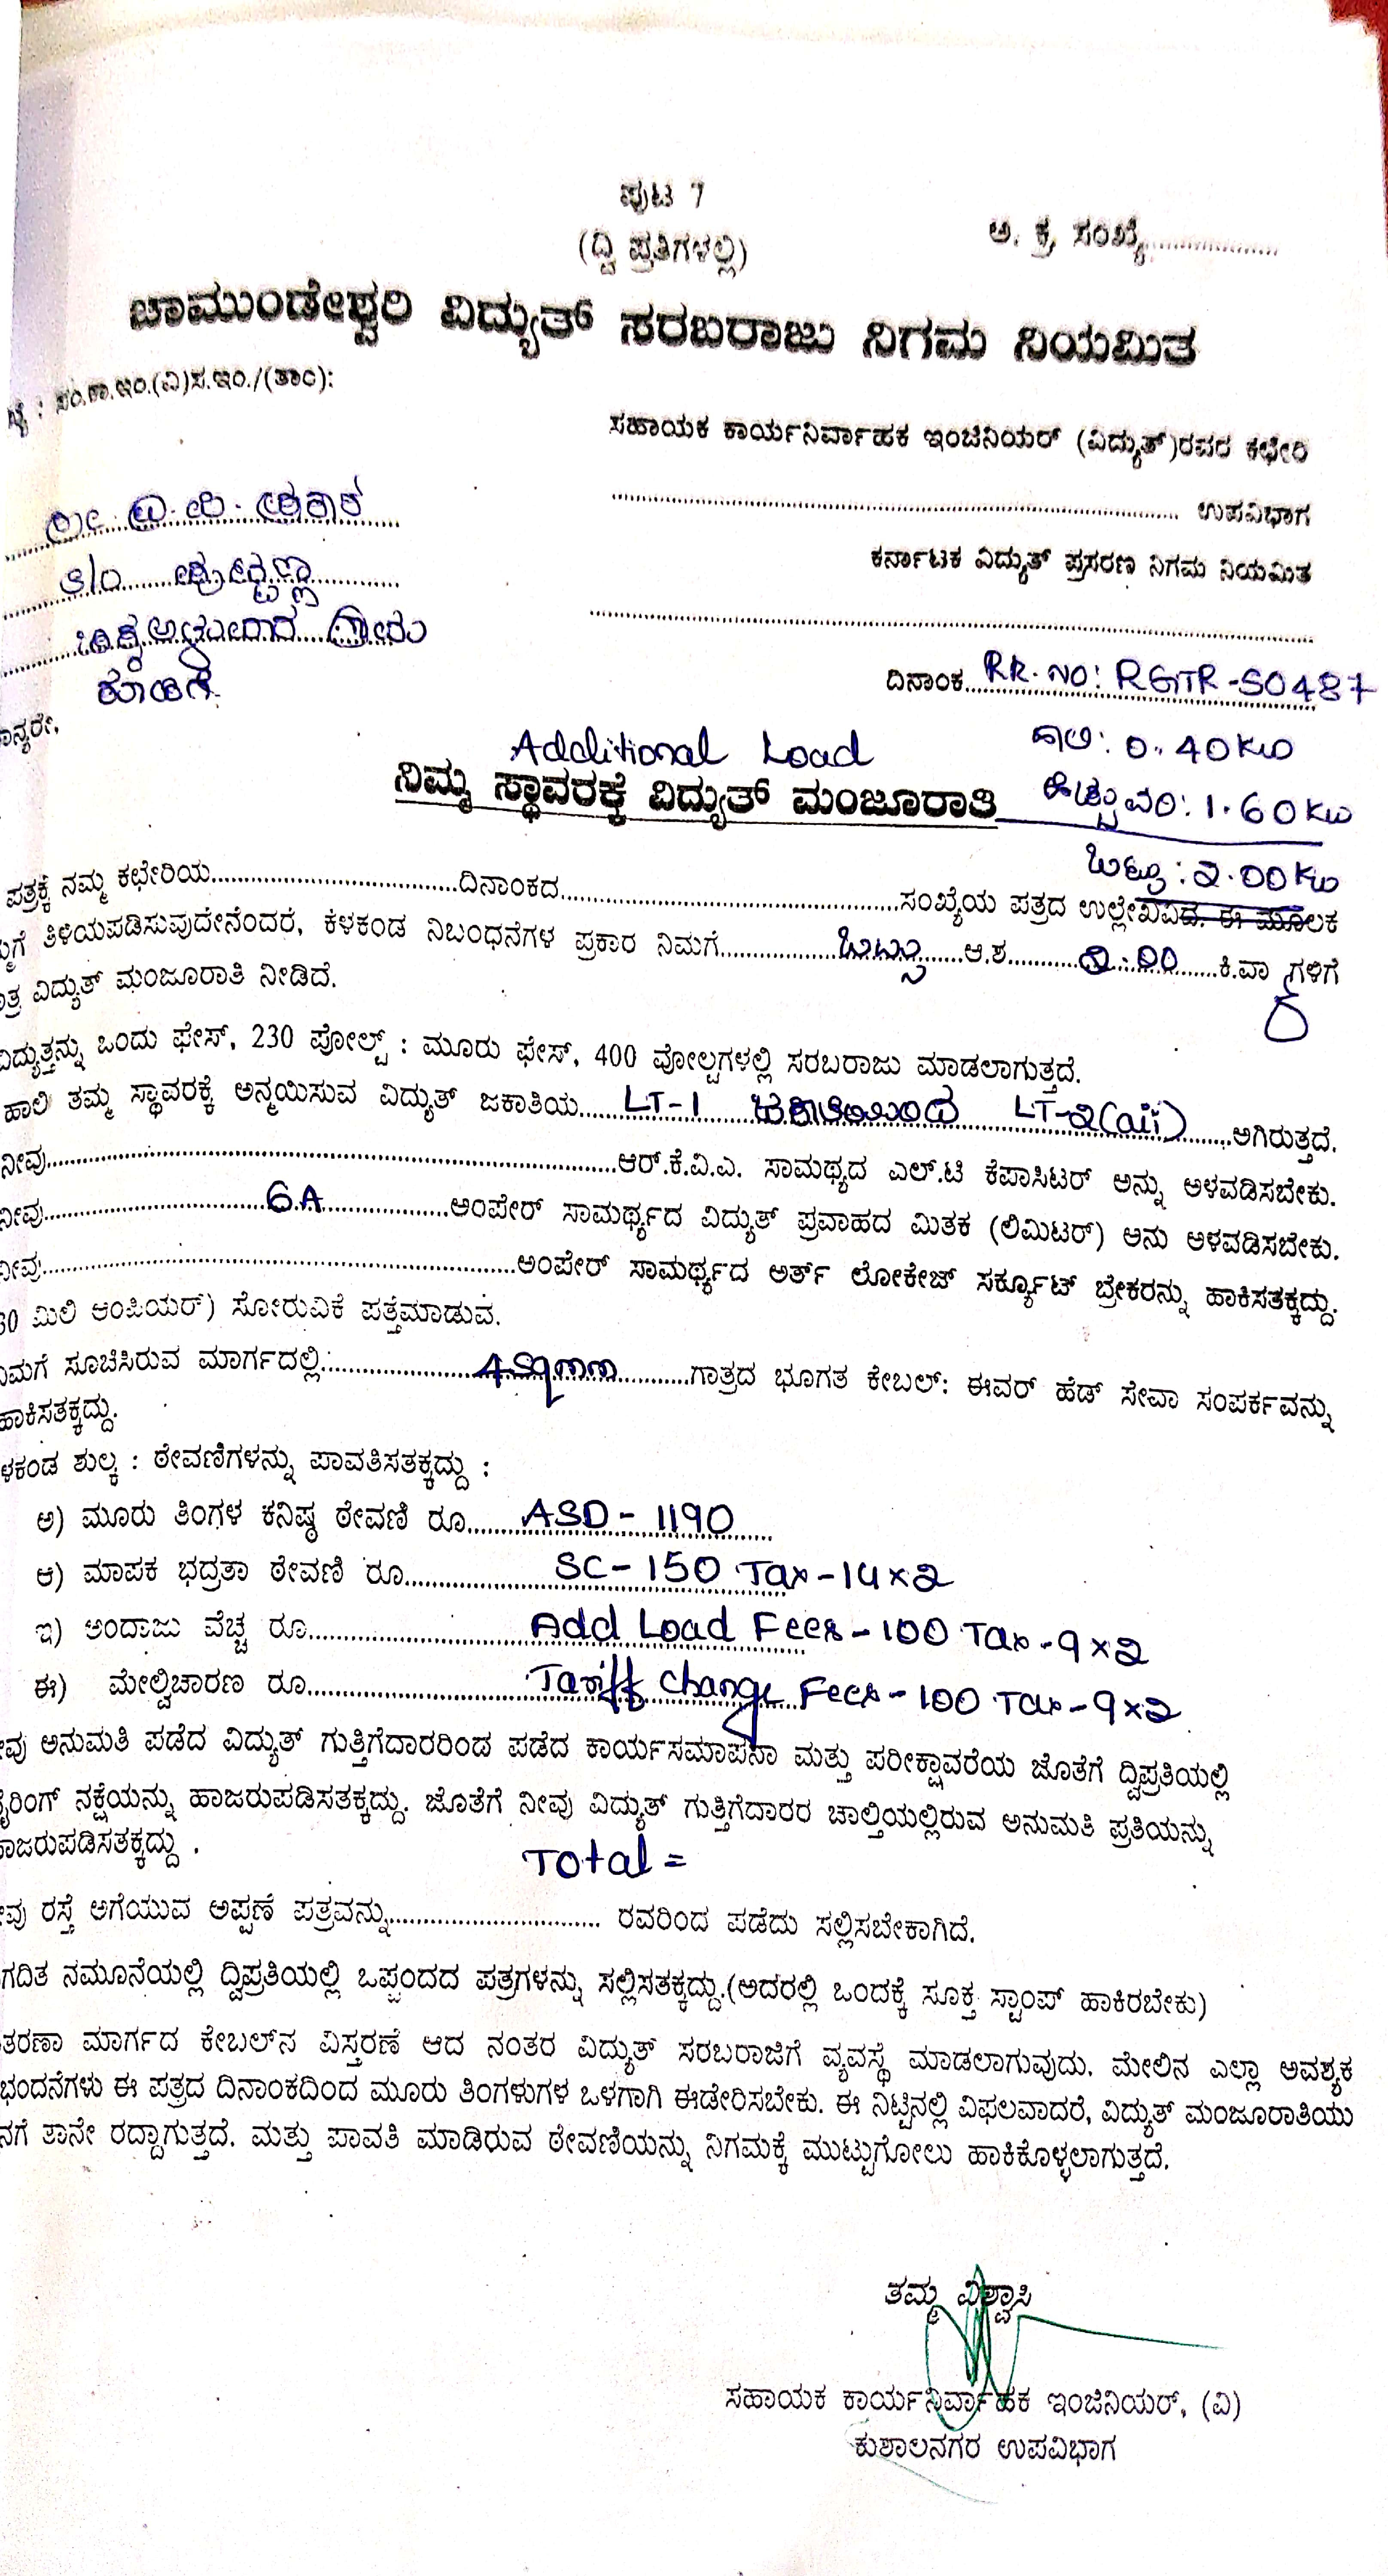 ಪುಟ 7
(ದ್ವಿ ಪ್ರತಿಗಳಲ್ಲಿ)
ಅ. ಕ್ರ. ಸಂಖ್ಯೆ....................
ಚಾಮುಂಡೇಶ್ವರಿ ವಿದ್ಯುತ್ ಸರಬರಾಜು ನಿಗಮ ನಿಯಮಿತ
ಸಂ.ಕಾ.ಇಂ.(ವಿ)ಸ.ಇಂ./(ತಾಂ):
ಸಹಾಯಕ ಕಾರ್ಯನಿರ್ವಾಹಕ ಇಂಜಿನಿಯರ್ (ವಿದ್ಯುತ್)ರವರ ಕಛೇರಿ
.................... ಉಪವಿಭಾಗ
ಕರ್ನಾಟಕ ವಿದ್ಯುತ್ ಪ್ರಸರಣ ನಿಗಮ ನಿಯಮಿತ
S/O ಪುಟ್ಟಣ್ಣ
ದಿನಾಂಕ RR. NO: RGTR-50487
Additional Load
ಹಾಲಿ: 0.40KW
ನಿಮ್ಮ ಸ್ಥಾವರಕ್ಕೆ ವಿದ್ಯುತ್ ಮಂಜೂರಾತಿ
ಹೆಚ್ಚುವರಿ: 1.60KW
ಒಟ್ಟು: 2.00KW
ಪತ್ರಕ್ಕೆ ನಮ್ಮ ಕಛೇರಿಯ....................ದಿನಾಂಕದ....................ಸಂಖ್ಯೆಯ ಪತ್ರದ ಉಲ್ಲೇಖವಿದೆ. ಈ ಮೂಲಕ
ತಿಳಿಯಪಡಿಸುವುದೇನೆಂದರೆ, ಕೆಳಕಂಡ ನಿಬಂಧನೆಗಳ ಪ್ರಕಾರ ನಿಮಗೆ..........ಒಟ್ಟು.....ಆ.ಶ..........2.00.....ಕಿ.ವಾ ಗಳಿಗೆ
ವಿದ್ಯುತ್ ಮಂಜೂರಾತಿ ನೀಡಿದೆ.
ವಿದ್ಯುತ್ತನ್ನು ಒಂದು ಫೇಸ್, 230 ವೋಲ್ಟ್ : ಮೂರು ಫೇಸ್, 400 ವೋಲ್ಟಗಳಲ್ಲಿ ಸರಬರಾಜು ಮಾಡಲಾಗುತ್ತದೆ.
ಹಾಲಿ ತಮ್ಮ ಸ್ಥಾವರಕ್ಕೆ ಅನ್ವಯಿಸುವ ವಿದ್ಯುತ್ ಜಕಾತಿಯ.....LT-1 ಜಕಾತಿಯಿಂದ LT-2(aii).....ಆಗಿರುತ್ತದೆ.
ನೀವು....................ಆರ್.ಕೆ.ವಿ.ಎ. ಸಾಮಥ್ಯದ ಎಲ್.ಟಿ ಕೆಪಾಸಿಟರ್ ಅನ್ನು ಅಳವಡಿಸಬೇಕು.
ನೀವು..........6A..........ಅಂಪೇರ್ ಸಾಮರ್ಥ್ಯದ ವಿದ್ಯುತ್ ಪ್ರವಾಹದ ಮಿತಕ (ಲಿಮಿಟರ್) ಅನು ಅಳವಡಿಸಬೇಕು.
ನೀವು....................ಅಂಪೇರ್ ಸಾಮರ್ಥ್ಯದ ಅರ್ತ್ ಲೋಕೇಜ್ ಸರ್ಕ್ಯೂಟ್ ಬ್ರೇಕರನ್ನು ಹಾಕಿಸತಕ್ಕದ್ದು.
30 ಮಿಲಿ ಆಂಪಿಯರ್) ಸೋರುವಿಕೆ ಪತ್ತೆಮಾಡುವ.
ನಿಮಗೆ ಸೂಚಿಸಿರುವ ಮಾರ್ಗದಲ್ಲಿ..........4sqmm..........ಗಾತ್ರದ ಭೂಗತ ಕೇಬಲ್: ಈವರ್ ಹೆಡ್ ಸೇವಾ ಸಂಪರ್ಕವನ್ನು
ಹಾಕಿಸತಕ್ಕದ್ದು.
ಳಕಂಡ ಶುಲ್ಕ : ಠೇವಣಿಗಳನ್ನು ಪಾವತಿಸತಕ್ಕದ್ದು :
ಅ) ಮೂರು ತಿಂಗಳ ಕನಿಷ್ಠ ಠೇವಣಿ ರೂ..... ASD - 1190
ಆ) ಮಾಪಕ ಭದ್ರತಾ ಠೇವಣಿ ರೂ.......... SC - 150 Tax - 14x2
ಇ) ಅಂದಾಜು ವೆಚ್ಚ ರೂ.......... Add Load Fees - 100 Tax - 9x2
ಈ) ಮೇಲ್ವಿಚಾರಣ ರೂ.......... Tariff change Fees - 100 Tax - 9x2
ವು ಅನುಮತಿ ಪಡೆದ ವಿದ್ಯುತ್ ಗುತ್ತಿಗೆದಾರರಿಂದ ಪಡೆದ ಕಾರ್ಯಸಮಾಪನಾ ಮತ್ತು ಪರೀಕ್ಷಾವರೆಯ ಜೊತೆಗೆ ದ್ವಿಪ್ರತಿಯಲ್ಲಿ
ೈರಿಂಗ್ ನಕ್ಷೆಯನ್ನು ಹಾಜರುಪಡಿಸತಕ್ಕದ್ದು. ಜೊತೆಗೆ ನೀವು ವಿದ್ಯುತ್ ಗುತ್ತಿಗೆದಾರರ ಚಾಲ್ತಿಯಲ್ಲಿರುವ ಅನುಮತಿ ಪ್ರತಿಯನ್ನು
ಾಜರುಪಡಿಸತಕ್ಕದ್ದು .
Total =
ವು ರಸ್ತೆ ಅಗೆಯುವ ಅಪ್ಪಣೆ ಪತ್ರವನ್ನು.................... ರವರಿಂದ ಪಡೆದು ಸಲ್ಲಿಸಬೇಕಾಗಿದೆ.
ಗದಿತ ನಮೂನೆಯಲ್ಲಿ ದ್ವಿಪ್ರತಿಯಲ್ಲಿ ಒಪ್ಪಂದದ ಪತ್ರಗಳನ್ನು ಸಲ್ಲಿಸತಕ್ಕದ್ದು.(ಅದರಲ್ಲಿ ಒಂದಕ್ಕೆ ಸೂಕ್ತ ಸ್ಟಾಂಪ್ ಹಾಕಿರಬೇಕು)
ತರಣಾ ಮಾರ್ಗದ ಕೇಬಲ್‌ನ ವಿಸ್ತರಣೆ ಆದ ನಂತರ ವಿದ್ಯುತ್ ಸರಬರಾಜಿಗೆ ವ್ಯವಸ್ಥೆ ಮಾಡಲಾಗುವುದು. ಮೇಲಿನ ಎಲ್ಲಾ ಅವಶ್ಯಕ
ಭಂದನೆಗಳು ಈ ಪತ್ರದ ದಿನಾಂಕದಿಂದ ಮೂರು ತಿಂಗಳುಗಳ ಒಳಗಾಗಿ ಈಡೇರಿಸಬೇಕು. ಈ ನಿಟ್ಟಿನಲ್ಲಿ ವಿಫಲವಾದರೆ, ವಿದ್ಯುತ್ ಮಂಜೂರಾತಿಯು
ನಗೆ ತಾನೇ ರದ್ದಾಗುತ್ತದೆ. ಮತ್ತು ಪಾವತಿ ಮಾಡಿರುವ ಠೇವಣಿಯನ್ನು ನಿಗಮಕ್ಕೆ ಮುಟ್ಟುಗೋಲು ಹಾಕಿಕೊಳ್ಳಲಾಗುತ್ತದೆ.
ತಮ್ಮ ವಿಶ್ವಾಸಿ
ಸಹಾಯಕ ಕಾರ್ಯನಿರ್ವಾಹಕ ಇಂಜಿನಿಯರ್, (ವಿ)
ಕುಶಾಲನಗರ ಉಪವಿಭಾಗ